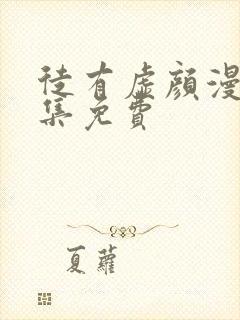 徒有虛顏漫
集免費
夏蘿